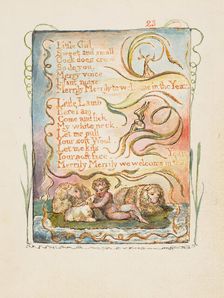 23
Little Girl
Sweet and small
Cock does crow
So do you.
Merry voice
Infant noise
Merrily Merrily to welcome in the Year
Little Lamb
Here I am,
Come and lick
My white neck.
Let me pull
Your soft Wool.
Let me kiss
Your soft face
Merrily Merrily we welcome in the Year